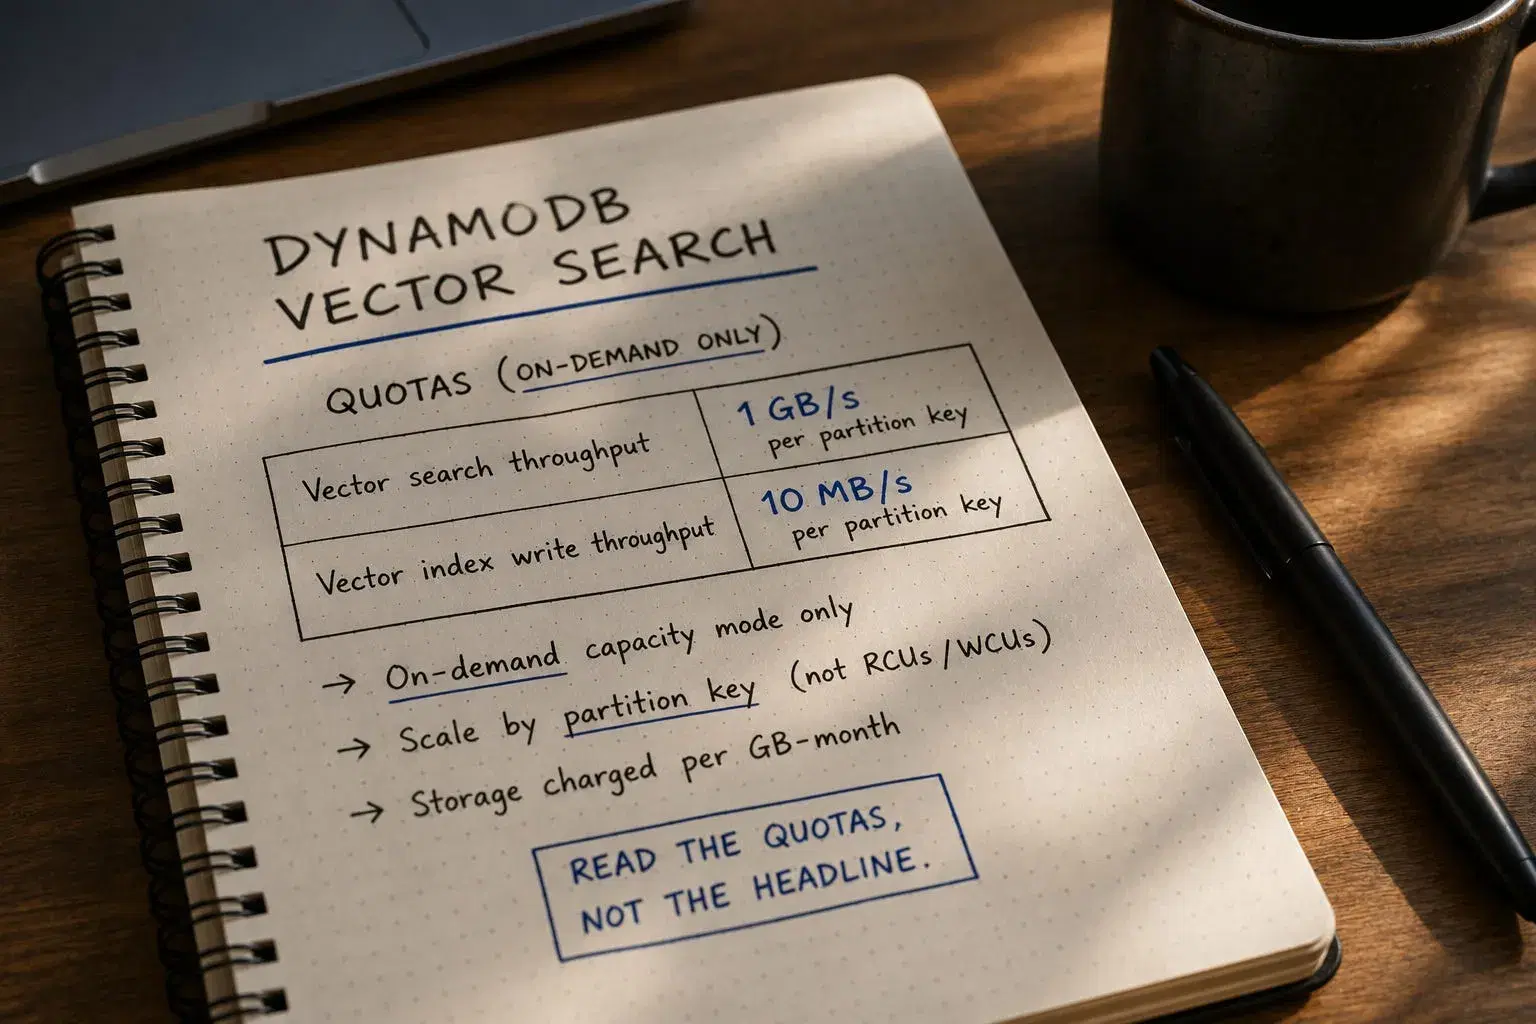 DYNAMODB
VECTOR SEARCH
QUOTAS (ON-DEMAND ONLY)
Vector search throughput
1 GB/s
per partition key
Vector index write throughput
10 MB/s
per partition key
→ On-demand capacity mode only
→ Scale by partition key (not RCUs/WCUs)
→ Storage charged per GB-month
READ THE QUOTAS,
NOT THE HEADLINE.